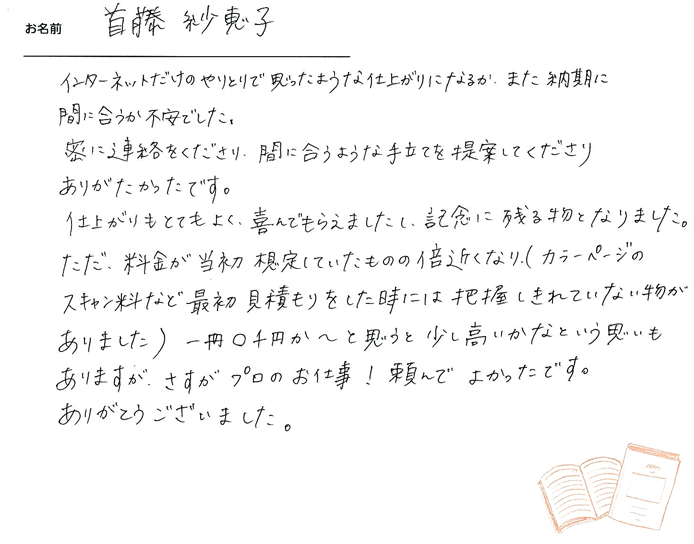 お名前 首藤 紗恵子
インターネットだけのやりとりで思ったような仕上がりになるか、また納期に
間に合うか不安でした。
密に連絡をくださり、間に合うような手立てを提案してくださり
ありがたかったです。
仕上がりもとてもよく、喜んでもらえましたし、記念に残る物となりました。
ただ、料金が当初想定していたものの倍近くなり、(カラーページの
スキャン料など最初見積もりをした時には把握しきれていない物が
ありました) 一冊〇千円か〜と思うと少し高いかなという思いも
ありますが、さすがプロのお仕事!頼んでよかったです。
ありがとうございました。